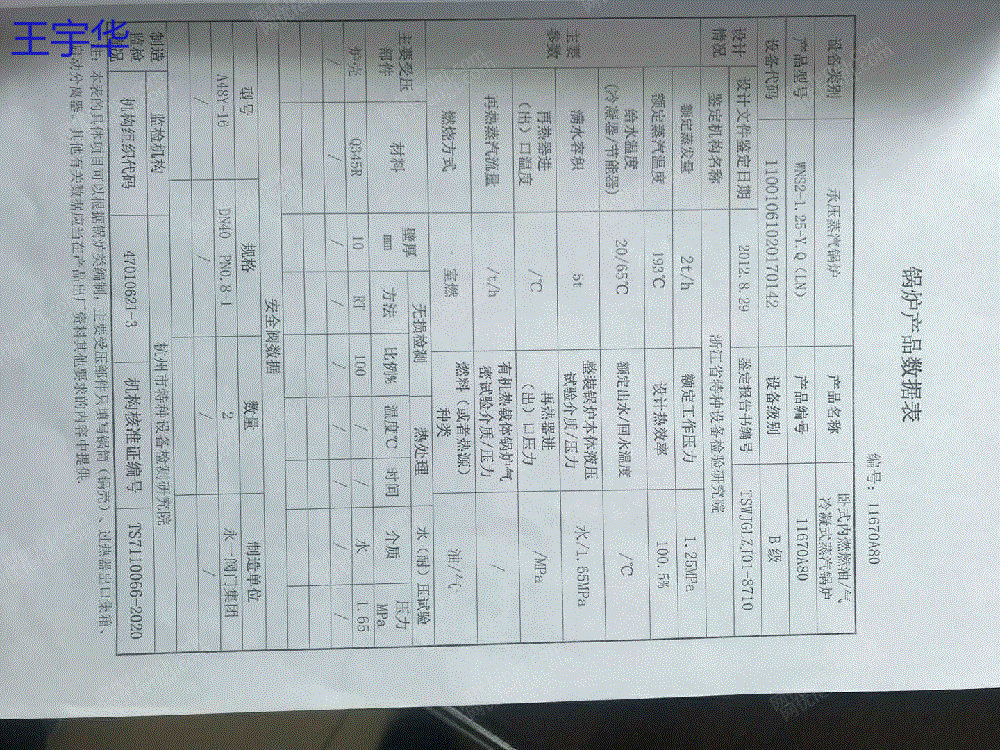 王宇华
锅炉产品数据表
编号：11670A80
设备类别 承压蒸汽锅炉 产品名称 卧式内燃燃油/气冷凝式蒸汽锅炉
产品型号 WNS2-1.25-Y.Q（LN） 产品编号 11670A80
设备代码 11001061020170142 设备级别 B 级
设计情况 设计文件鉴定日期 2012.8.29 鉴定报告书编号 TSWJGLZJ01-8710
鉴定机构名称 浙江省特种设备检验研究院
主要参数 额定蒸发量 2t/h 额定工作压力 1.25MPa
额定蒸汽温度 193℃ 设计热效率 100.5%
给水温度（冷凝器/节能器） 20/65℃ 额定出水/回水温度 /℃
满水容积 5t 整装锅炉本体液压试验介质/压力 水/1.65MPa
再热器进（出）口温度 /℃ 再热器进（出）口压力 /MPa
再热蒸汽流量 /t/h 有机热载体锅炉气密试验介质/压力 /
燃烧方式 室燃 燃料（或者热源）种类 油/气
主要受压部件 材料 壁厚mm 无损检测 热处理 水（耐）压试验
方法 比例% 温度℃ 时间 介质 压力MPa
炉壳 Q345R 10 RT 100 / / 水 1.65
/ / / / / / / / /
安全阀数据
型号 规格 数量 制造单位
A48Y-16 DN40 PN0.8-1 2 永一阀门集团
/ / / /
制造监检情况 监检机构 杭州市特种设备检测研究院
机构组织代码 4701062J-3 机构核准证编号 TS7110066-2020
注：本表的具体项目可以根据锅炉类编制，主要受压部件只填写锅筒（锅壳）、过热器出口集箱、
启动分离器。其他有关数据应当在产品出厂资料其他要求的内容中提供。